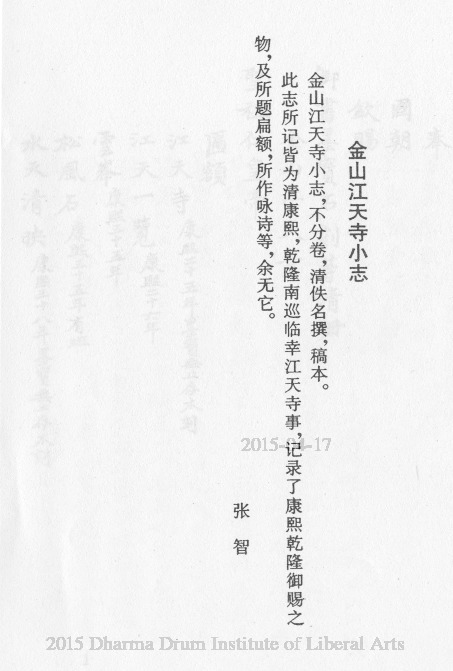 金山江天寺小志
金山江天寺小志，不分卷，清佚名撰，稿本。
此志所记皆为清康熙，乾隆南巡临幸江天寺事，记录了康熙乾隆御赐之
物，及所题扁额，所作咏诗等，余无它。
张智
2015-04-17
2015 Dharma Drum Institute of Liberal Arts